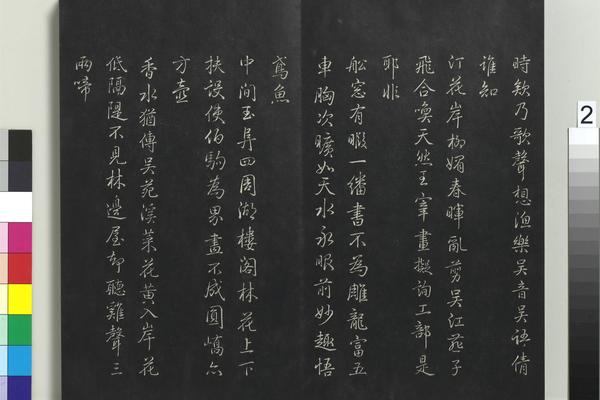 時欸乃歌聲想漁樂吳音吳語倩
誰知
汀花岸柳媚春暉亂剪吳江燕子
飛合喚天然王宰畫擬詢工部是
耶非
舩窓有暇一繙書不為雕龍富五
車胸次曠如天水永眼前妙趣悟
鳶魚
中間玉界四周湖樓閣林花上下
扶設使伯駒為界畫不成圓嶠亦
方壺
香水猶傳吳苑溪菜花黃入岸花
低隔隄不見林邊屋却聽雞聲三
兩啼
2